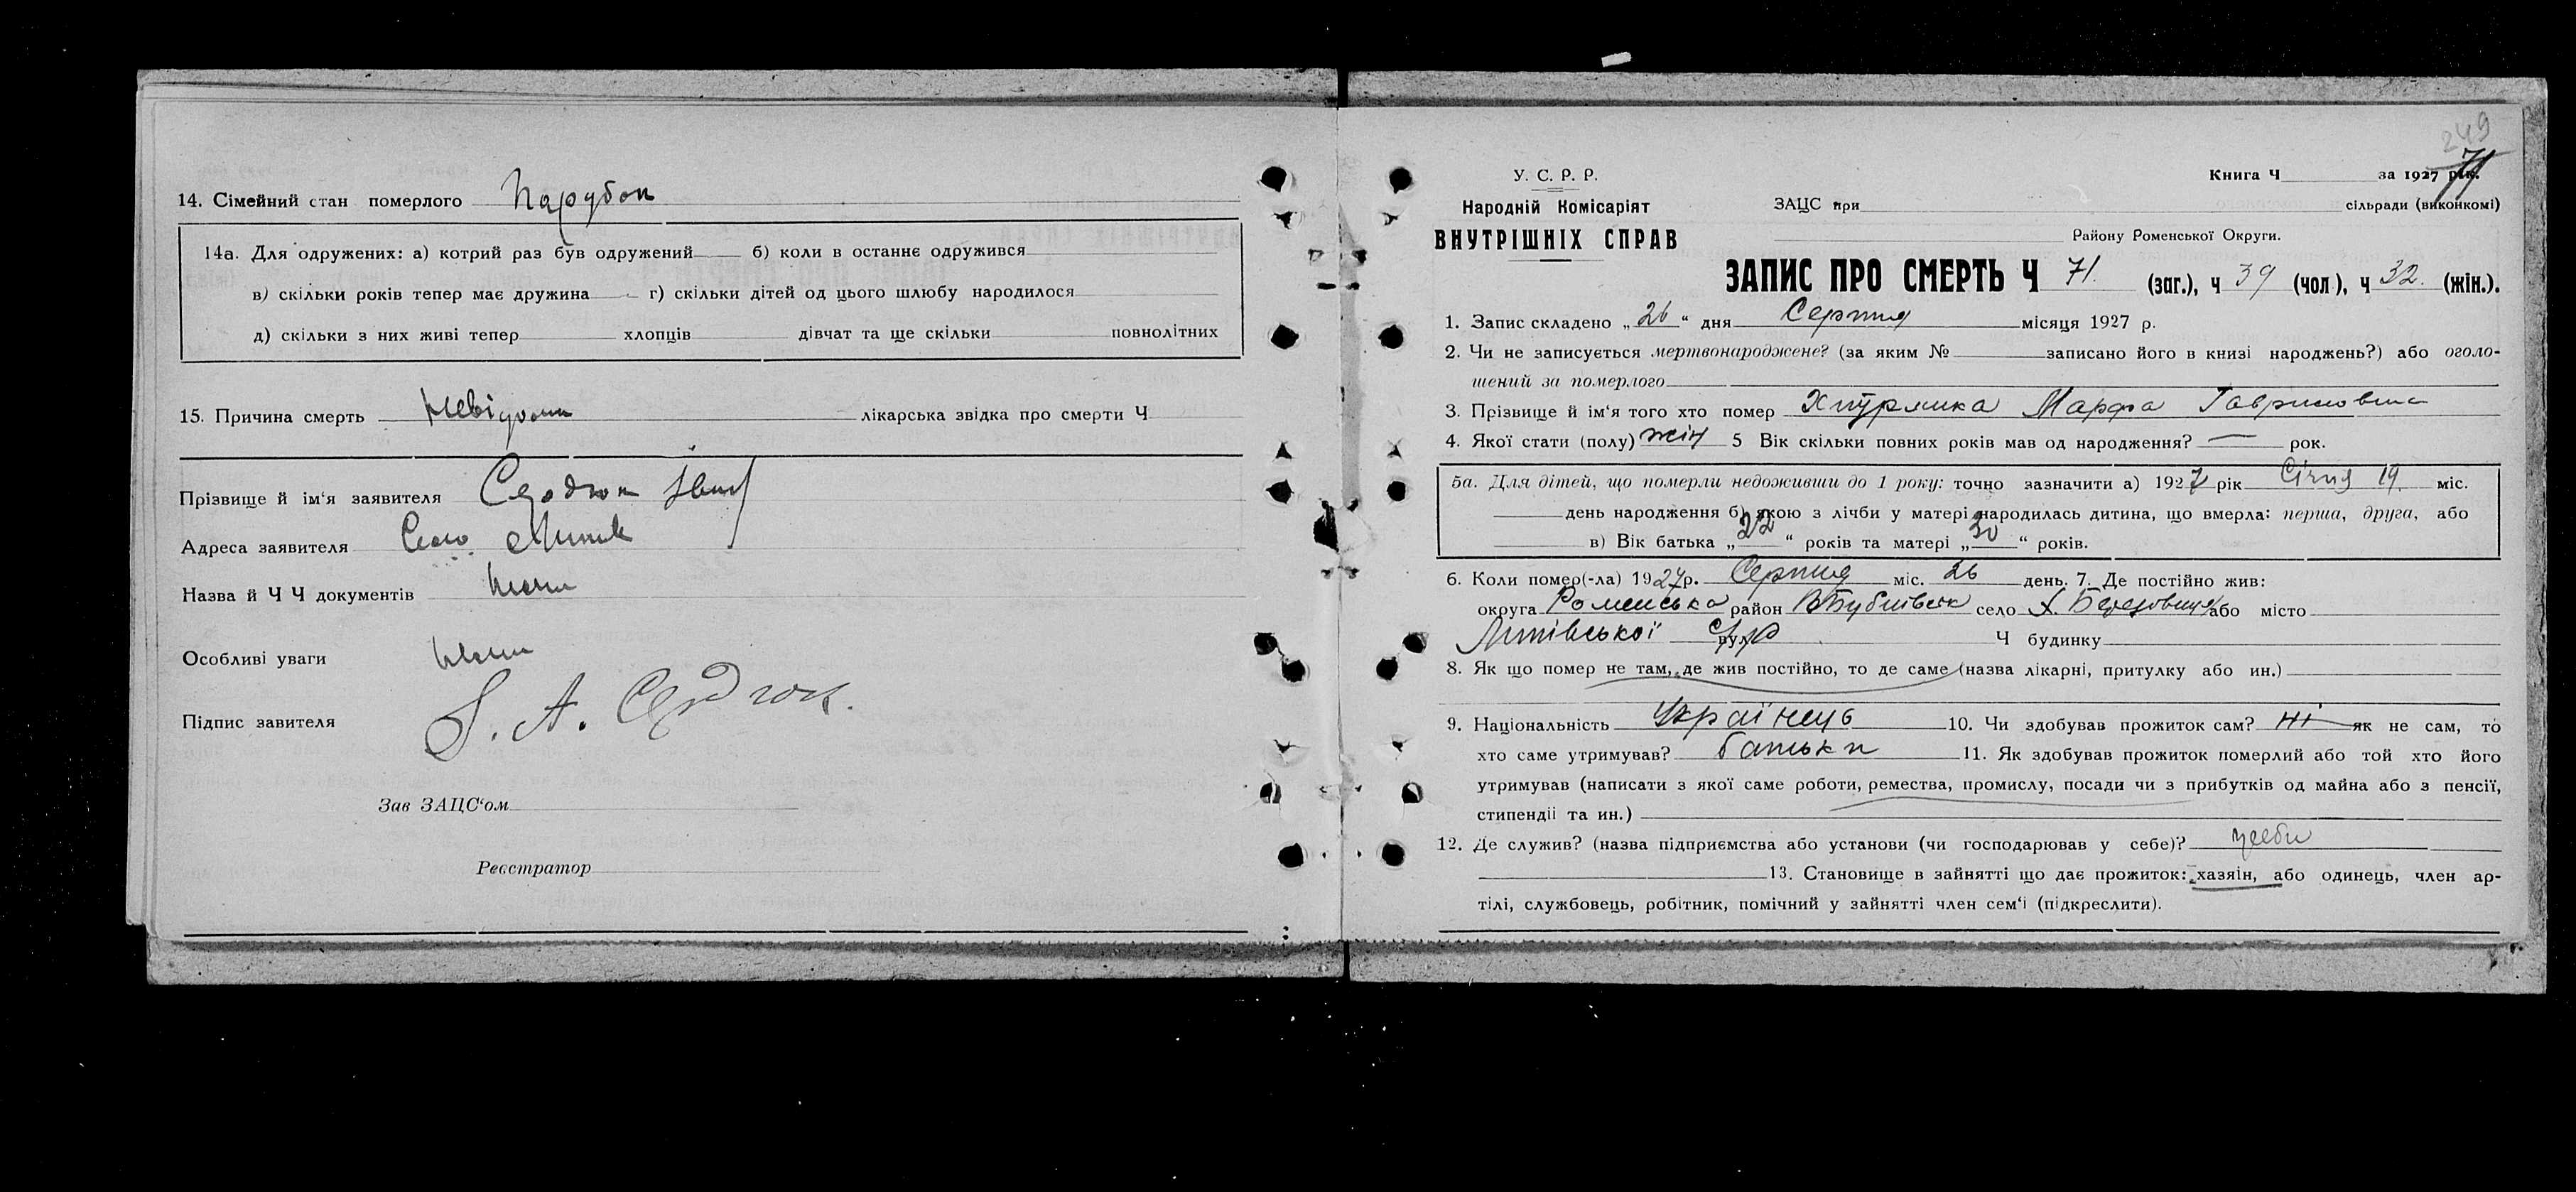 14. Сімейний стан померлого Парубок
14а. Для одружених: а) котрий раз був одружений б) коли в останнє одружився
в) скільки років тепер має дружина г) скільки дітей од цього шлюбу народилося
д) скільки з них живі тепер хлопців дівчат та ще скільки повнолітних
15. Причина смерть Невідома лікарська звідка про смерти Ч
Прізвище й ім'я заявителя Сердюк Іван
Адреса заявителя Село
Назва й Ч Ч документів Нема
Особливі уваги Нема
Підпис завителя І. А. Сердюк.
Зав ЗАЦС'ом
Реєстратор
249
У. С. Р. Р.
Народній Комісаріят
ВНУТРІШНІХ СПРАВ
Книга Ч за 1927 рік. 71
ЗАЦС при сільради (виконкомі)
Району Роменської Округи.
ЗАПИС ПРО СМЕРТЬ Ч 71. (заг.), ч 39 (чол.), ч 32. (жін.).
1. Запис складено „26“ дня Серпня місяця 1927 р.
2. Чи не записується мертвонароджене? (за яким № записано його в книзі народжень?) або оголо-
шений за померлого
3. Прізвище й ім'я того хто помер Марфа Гавриловна
4. Якої стати (полу) жін 5 Вік скільки повних років мав од народження? — рок.
5а. Для дітей, що померли недоживши до 1 року: точно зазначити а) 1927 рік Січня 19. міс.
день народження б) якою з лічби у матері народилась дитина, що вмерла: перша, друга, або
в) Вік батька „22“ років та матері „30“ років.
6. Коли помер(-ла) 1927 р. Серпня міс. 26 день. 7. Де постійно жив:
округа Роменська район село Х. або місто
Липівської с/р вул. Ч будинку
8. Як що помер не там, де жив постійно, то де саме (назва лікарні, притулку або ин.)
9. Національність Українець 10. Чи здобував прожиток сам? ні як не сам, то
хто саме утримував? батьки 11. Як здобував прожиток померлий або той хто його
утримував (написати з якої саме роботи, ремества, промислу, посади чи з прибутків од майна або з пенсії,
стипендії та ин.)
12. Де служив? (назва підприємства або установи (чи господарював у себе)? у себи
13. Становище в зайнятті що дає прожиток: хазяїн, або одинець, член ар-
тілі, службовець, робітник, помічний у зайнятті член сем'ї (підкреслити).